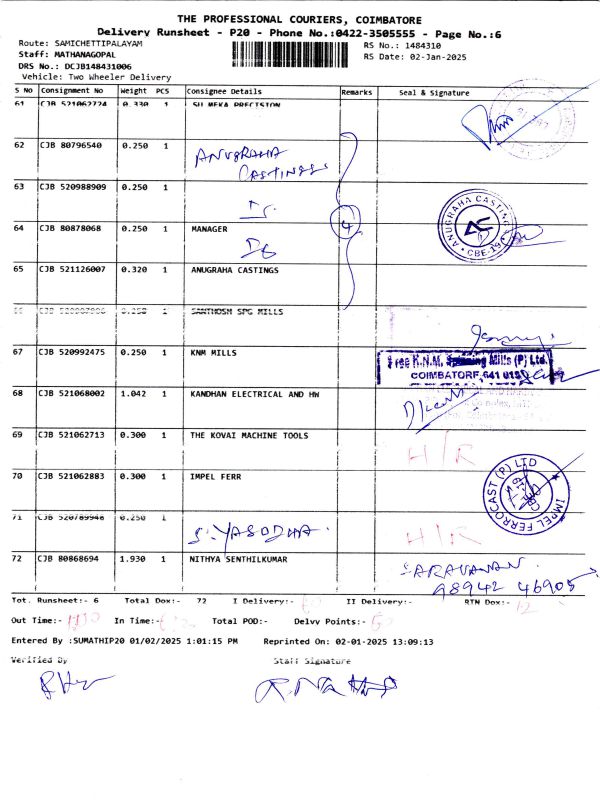 THE PROFESSIONAL COURIERS, COIMBATORE
Delivery Runsheet - P20 - Phone No.:0422-3505555 - Page No.:6
Route: SAMICHETTIPALAYAM RS No.: 1484310
Staff: MATHANAGOPAL RS Date: 02-Jan-2025
DRS No.: DCJB148431006
Vehicle: Two Wheeler Delivery
S No Consignment No Weight PCS Consignee Details Remarks Seal & Signature
61 CJB 521062724 0.330 1 SU MEKA PRECISION
62 CJB 80796540 0.250 1 ANUGRAHA
CASTINGS
63 CJB 520988909 0.250 1
64 CJB 80878068 0.250 1 MANAGER 4
ANUGRAHA CASTING
CBE-19
65 CJB 521126007 0.320 1 ANUGRAHA CASTINGS
66 0.250 1 SANTHOSH SPG MILLS
67 CJB 520992475 0.250 1 KNM MILLS
Sree K.N.M. Spinning Mills (P) Ltd.
COIMBATORE 641 019
68 CJB 521068002 1.042 1 KANDHAN ELECTRICAL AND HW
69 CJB 521062713 0.300 1 THE KOVAI MACHINE TOOLS H/R
70 CJB 521062883 0.300 1 IMPEL FERR
IMPEL FERROCAST (P) LTD
71 CJB 520789948 0.250 1 S. YASODHA H/R
72 CJB 80868694 1.930 1 NITHYA SENTHILKUMAR SARAVANAN
98942 46905
Tot. Runsheet:- 6 Total Dox:- 72 I Delivery:- 60 II Delivery:- RTN Dox:- 12
Out Time:- In Time:- Total POD:- Delvy Points:-
Entered By :SUMATHIP20 01/02/2025 1:01:15 PM Reprinted On: 02-01-2025 13:09:13
Verified By Staff Signature